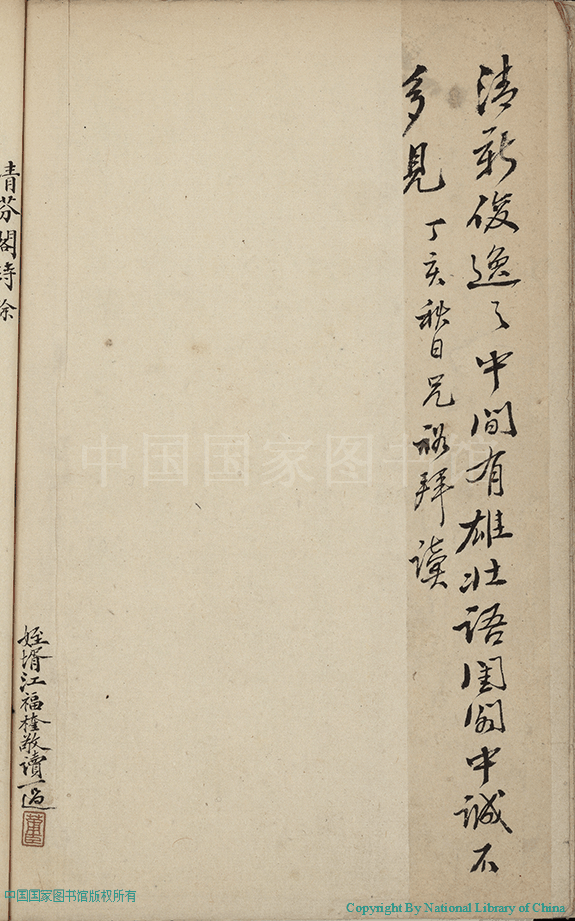 清新俊逸之中間有雄壯語閨閣中誠不
多見
丁亥秋日兄裕拜讀
青芬閣詩余
姪壻江福橦敬讀一過
中国国家图书馆
中国国家图书馆版权所有
Copyright By National Library of China